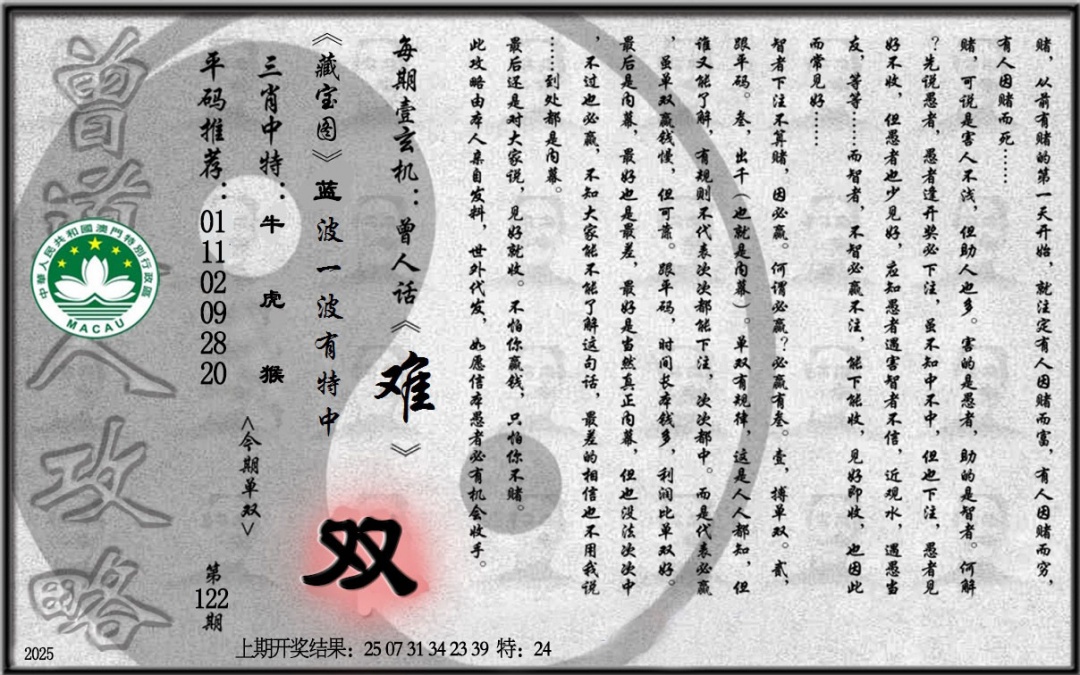 赌，从前有赌的第一天开始，就注定有人因赌而富，有人因赌而穷，
有人因赌而死……
赌，可说是害人不浅，但助人也多。害的是愚者，助的是智者。何解
？先说愚者，愚者逢开奖必下注，虽不知中不中，但也下注，愚者见
好不收，但愚者也少见好，应知愚者遇害智者不信，近观水，遇愚当
友，等等……而智者，不智必赢不注，能下能收，见好即收，也因此
而常见好……
智者下注不算赌，因必赢。何谓必赢？必赢有叁。壹，搏单双。贰，
跟平码。叁，出千（也就是内幕）。单双有规律，这是人人都知，但
谁又能了解，有规则不代表次次都能下注，次次都中。而是代表必赢
，虽单双赢钱慢，但可靠。跟平码，时间长本钱多，利润比单双好。
最后是内幕，最好也是最差，最好是当然真正内幕，但也没法次次中
，不过也必赢，不知大家能不能了解这句话，最差的相信也不用我说
……到处都是内幕。
最后还是对大家说，见好就收。不怕你赢钱，只怕你不赌。
此攻略由本人亲自发料，世外代发，如愿信本愚者必有机会收手。
每期壹玄机：曾人话《难》
《藏宝图》蓝波一波有特中
三肖中特：牛 虎 猴
<今期单双>
双
平码推荐：01 11 02 09 28 20
第122期
曾道人攻略
中華人民共和國澳門特別行政區
MACAU
上期开奖结果：25 07 31 34 23 39 特：24
2025